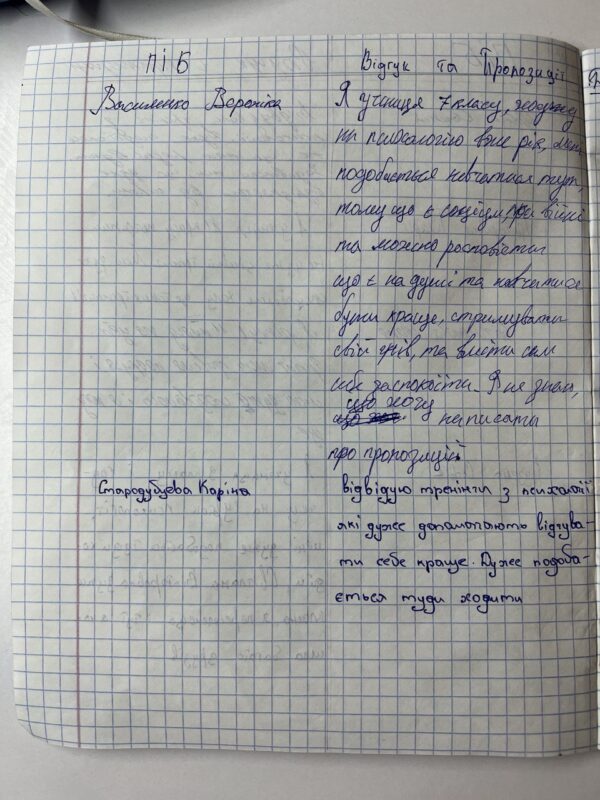 ПІБ
Відгук та Пропозиції
Василенко Вероніка
Я учениця 7 класу, ходжу
на психологію вже рік, мені
подобається навчатися тут,
тому що є соціум, при війні
та можно росповісти
що є на душі та навчитися
бути краще, стримувати
свій гнів, та вміти сам
себе заспокоїти. Я не знаю,
що хочу
написати
про пропозиції
Стародубцева Каріна
відвідую тренінги з психології
які дуже допомогають відчува-
ти себе краще. Дуже подоба-
ється туди ходити